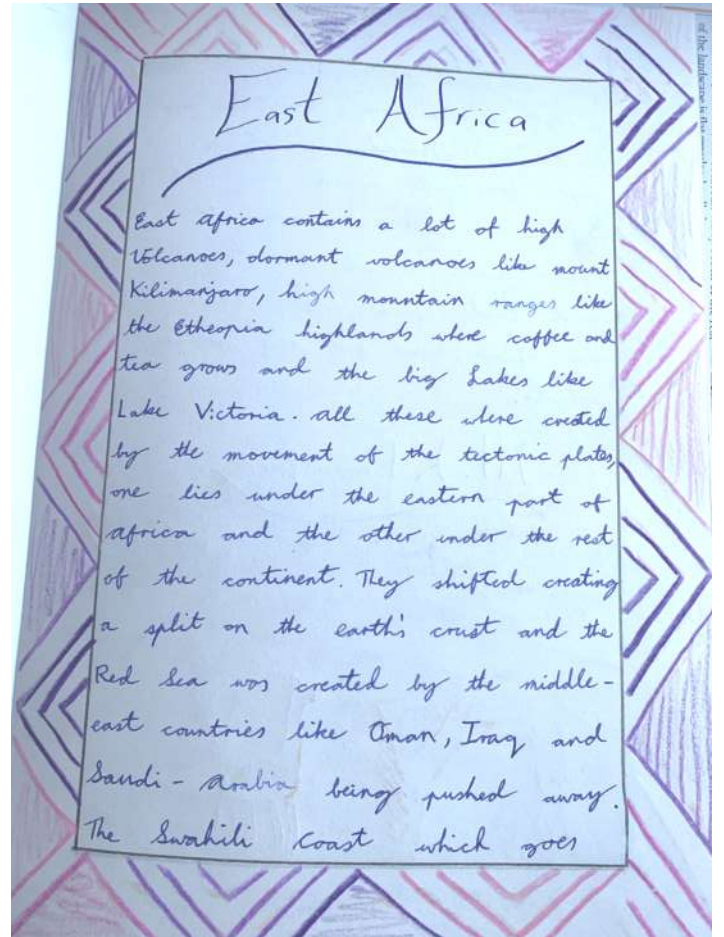 East Africa
East africa contains a lot of high
Volcanoes, dormant volcanoes like mount
Kilimanjaro, high mountain ranges like
the Etheopia highlands where coffee and
tea grows and the big Lakes like
Lake Victoria. all these where created
by the movement of the tectonic plates,
one lies under the eastern part of
africa and the other under the rest
of the continent. They shifted creating
a split on the earth's crust and the
Red Sea was created by the middle-
east countries like Oman, Iraq and
Saudi-arabia being pushed away.
The Swahili coast which goes
of the landscape is flat